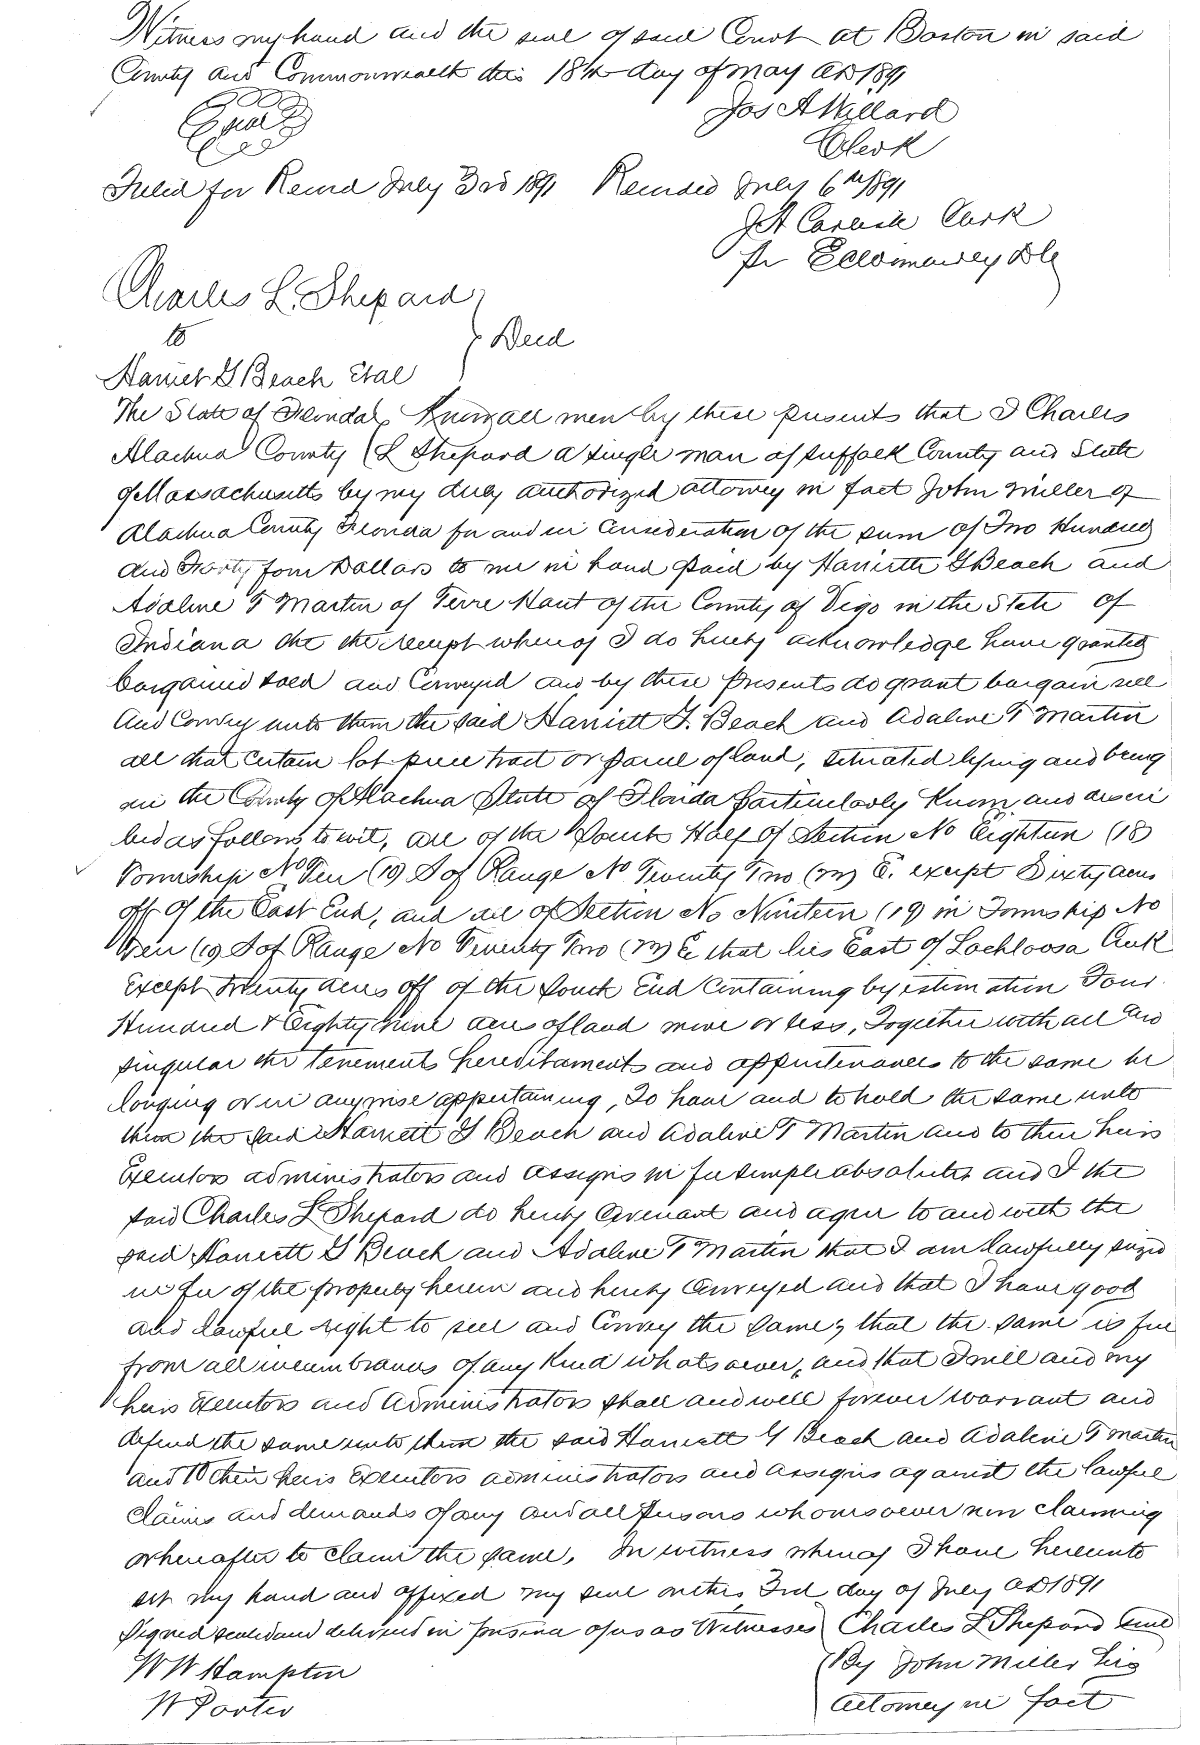 Witness my hand and the seal of said Court at Boston in said
County and Commonwealth this 18th day of May AD 1891
Seal
Jos A Willard
Clerk
Filed for Record July 3rd 1891 Recorded July 6th 1891
J A Carlisle Clerk
pr
Charles L. Shepard
to
Deed
Harriet G Beach Etal
The State of Florida Know all men by these presents that I Charles
Alachua County L Shepard a single man of Suffolk County and State
of Massachusetts by my duly authorized attorney in fact John Miller of
Alachua County Florida for and in Consideration of the sum of Two Hundred
and Forty four Dollars to me in hand paid by Harriette G Beach and
Adaline T Martin of Terre Haut of the County of Vigo in the State of
Indiana the the receipt whereof I do hereby acknowledge have granted
bargained sold and Conveyed and by these presents do grant bargain sell
and Convey unto them the said Harriett G. Beach and Adaline T Martin
all that certain lot piece tract or parcel of land, situated lying and being
in the County of Alachua State of Florida particularly Known and descri
bed as follows, to wit, all of the South Half of Section No Eighteen (18)
Township No Ten (10) S of Range No Twenty Two (22) E. except Sixty acres
off of the East End, and all of Section No Nineteen (19) in Township No
Ten (10) S of Range No Twenty Two (22) E that lies East of Lochloosa Creek
Except Twenty acres off of the South End Containing by estimation Four
Hundred & Eighty nine acres of land more or less, Together with all and
singular the tenements hereditaments and appurtenances to the same be
longing or in anywise appertaining, To have and to hold the same unto
them the said Harriett G Beach and Adaline T Martin and to their heirs
Executors administrators and assigns in fee simple absolute and I the
said Charles L Shepard do hereby Covenant and agree to and with the
said Harriett G Beach and Adaline T Martin that I am lawfully seized
in fee of the property herein and hereby Conveyed and that I have good
and lawful right to sell and Convey the same; that the same is free
from all incumbrances of any Kind whatsoever, and that I will and my
heirs Executors and Administrators shall and will forever warrant and
defend the same unto them the said Harriett G Beach and Adaline T Martin
and to their heirs Executors administrators and assigns against the lawful
claims and demands of any and all persons whomsoever now claiming
or hereafter to claim the same. In witness whereof I have hereunto
set my hand and affixed my seal on this 3rd day of July AD 1891
Signed sealed and delivered in presence of us as Witnesses Charles L Shepard Seal
W W Hampton By John Miller his
W Porter Attorney in fact